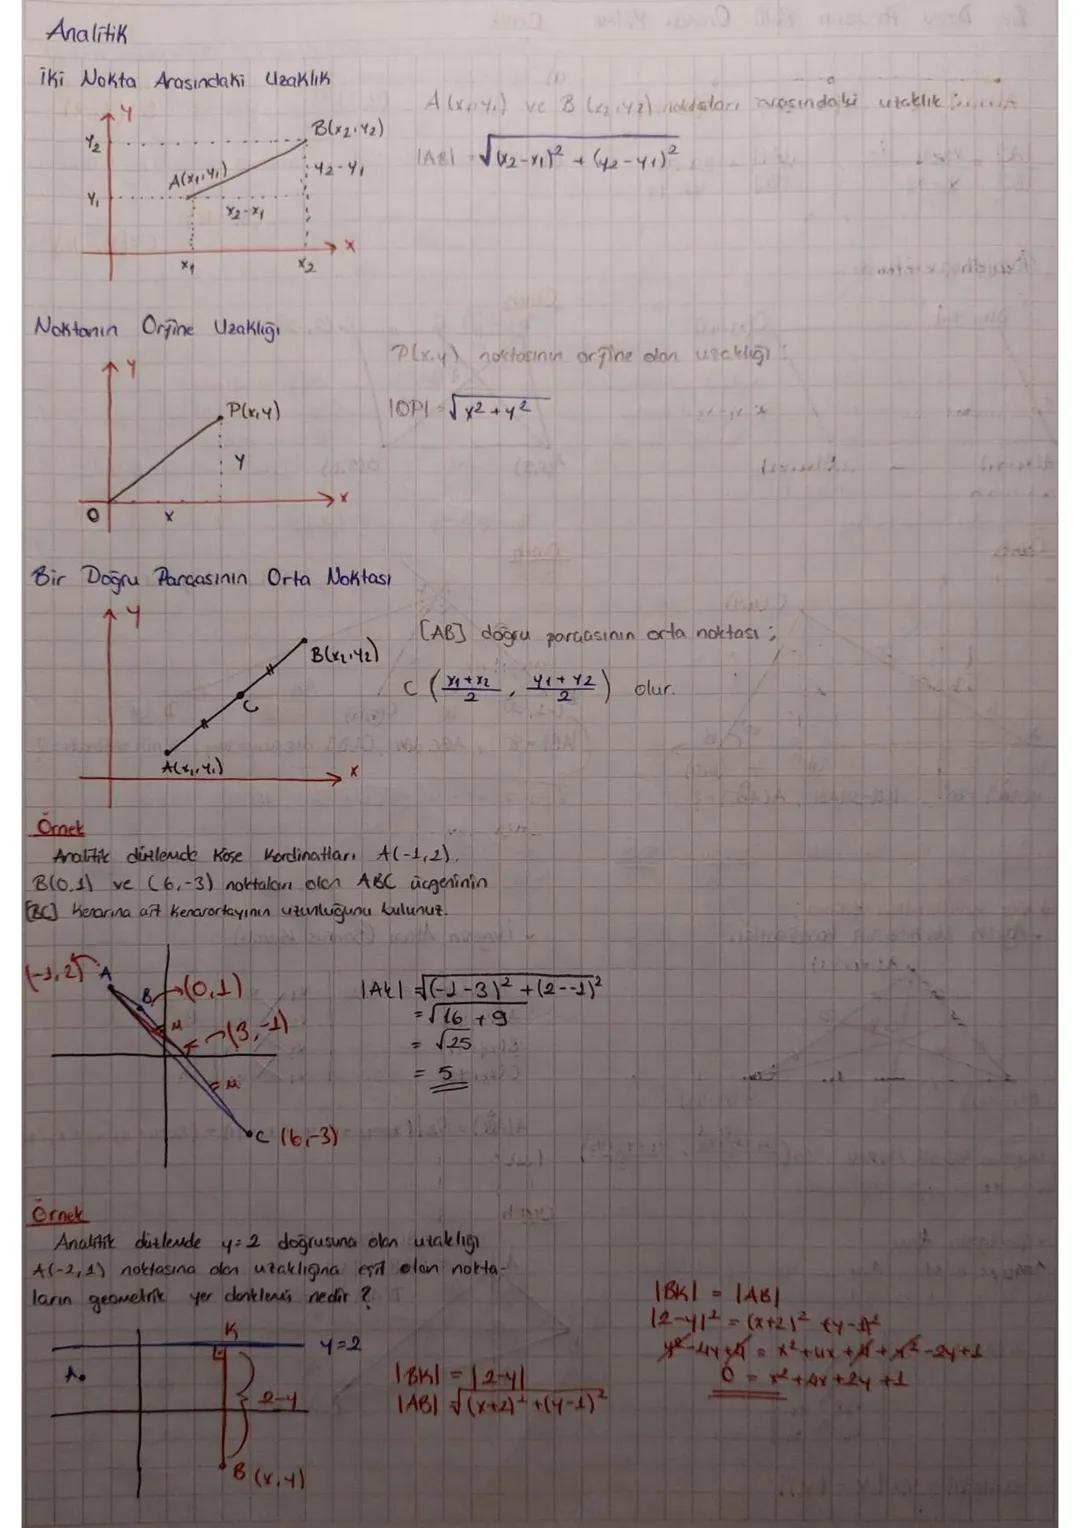 Analitik
İki Nokta Arasındaki Uzaklık
y
y2
y1
A(x1,y1)
B(x2,y2)
y2-y1
x2-x1
x1
x2
x
A(x1,y1) ve B(x2,y2) noktaları arasındaki uzaklık ;
|AB| = √(x2-x1)² + (y2-y1)²
Noktanın Orjine Uzaklığı
y
P(x,y)
y
O
x
x
P(x,y) noktasının orjine olan uzaklığı ;
|OP| = √x²+y²
Bir Doğru Parçasının Orta Noktası
y
B(x2,y2)
C
A(x1,y1)
x
[AB] doğru parçasının orta noktası ;
C (x1+x2/2 , y1+y2/2) olur.
Örnek
Analitik düzlemde Köşe Kordinatları A(-1,2),
B(0,1) ve (6,-3) noktaları olan ABC üçgeninin
[BC] Kenarına ait Kenarortayının uzunluğunu bulunuz.
(-1,2)
A
B
(0,1)
(3,-1)
C (6,-3)
|AK| = √(-1-3)² + (2--1)²
= √16 + 9
= √25
= 5
Örnek
Analitik düzlemde y=2 doğrusuna olan uzaklığı
A(-2,1) noktasına olan uzaklığına eşit olan nokta-
ların geometrik yer denklemi nedir ?
K
y=2
A
2-y
B (x,y)
|BK| = |2-y|
|AB| = √(x+2)² + (y-1)²
|BK| = |AB|
|2-y|² = (x+2)² + (y-1)²
y²-4y+4 = x²+4x+4+y²-2y+1
0 = x²+4x+2y+1